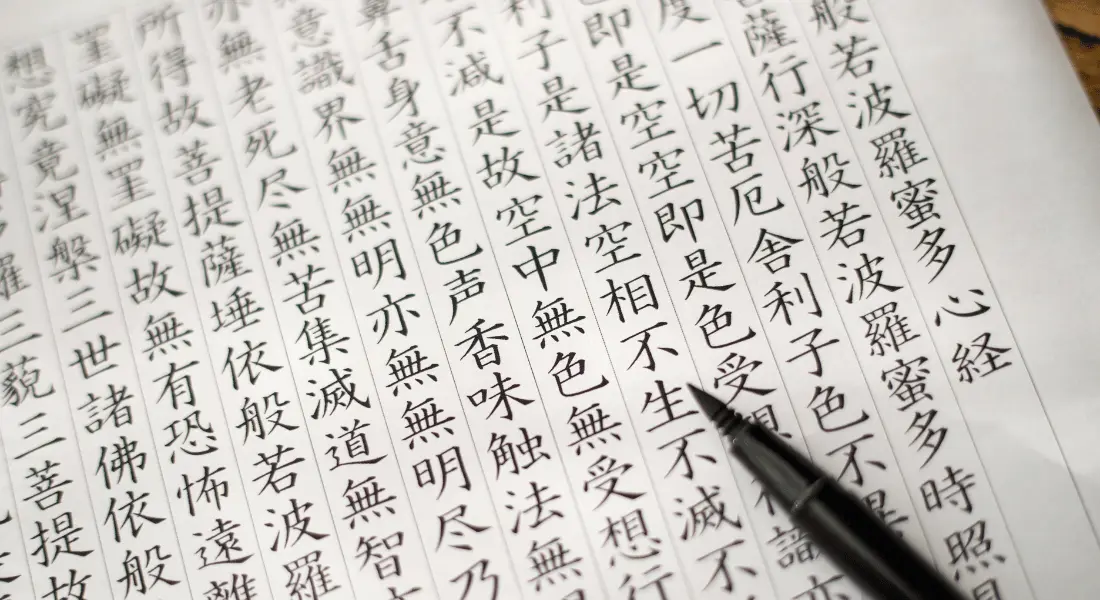 般若波羅蜜多心経
菩薩行深般若波羅蜜多時照
度一切苦厄舎利子色不異
即是空空即是色受想行識亦
利子是諸法空相不生不滅不
不減是故空中無色無受想行
鼻舌身意無色声香味触法無
意識界無無明亦無無明尽乃
亦無老死尽無苦集滅道無智
所得故菩提薩埵依般若波羅
罣礙無罣礙故無有恐怖遠離
想究竟涅槃三世諸佛依般
多羅三藐三菩提故